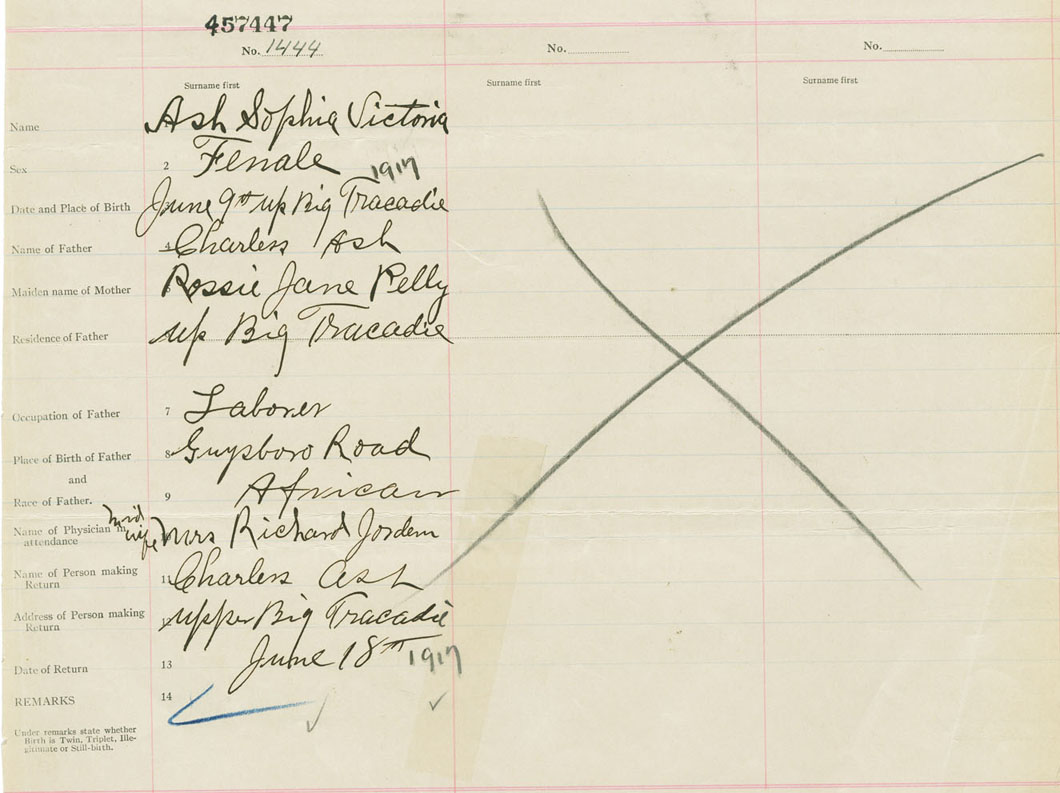 457447
No. 1444 No. No.
Surname first Surname first Surname first
Name Ash Sophia Victoria
Sex 2 Female
1917
Date and Place of Birth June 9th up Big Tracadie
Name of Father 4 Charless Ash
Maiden name of Mother Rossie Jane Pelly
Residence of Father up Big Tracadie
Occupation of Father 7 Laborer
Place of Birth of Father 8 Guysboro Road
and
Race of Father. 9 African
mid
wife
Name of Physician in
attendance Mrs Richard Jordem
Name of Person making
Return 11 Charless Ash
Address of Person making
Return 12 upper Big Tracadie
Date of Return 13 June 18th 1917
REMARKS 14
Under remarks state whether
Birth is Twin, Triplet, Ille-
gitimate or Still-birth.